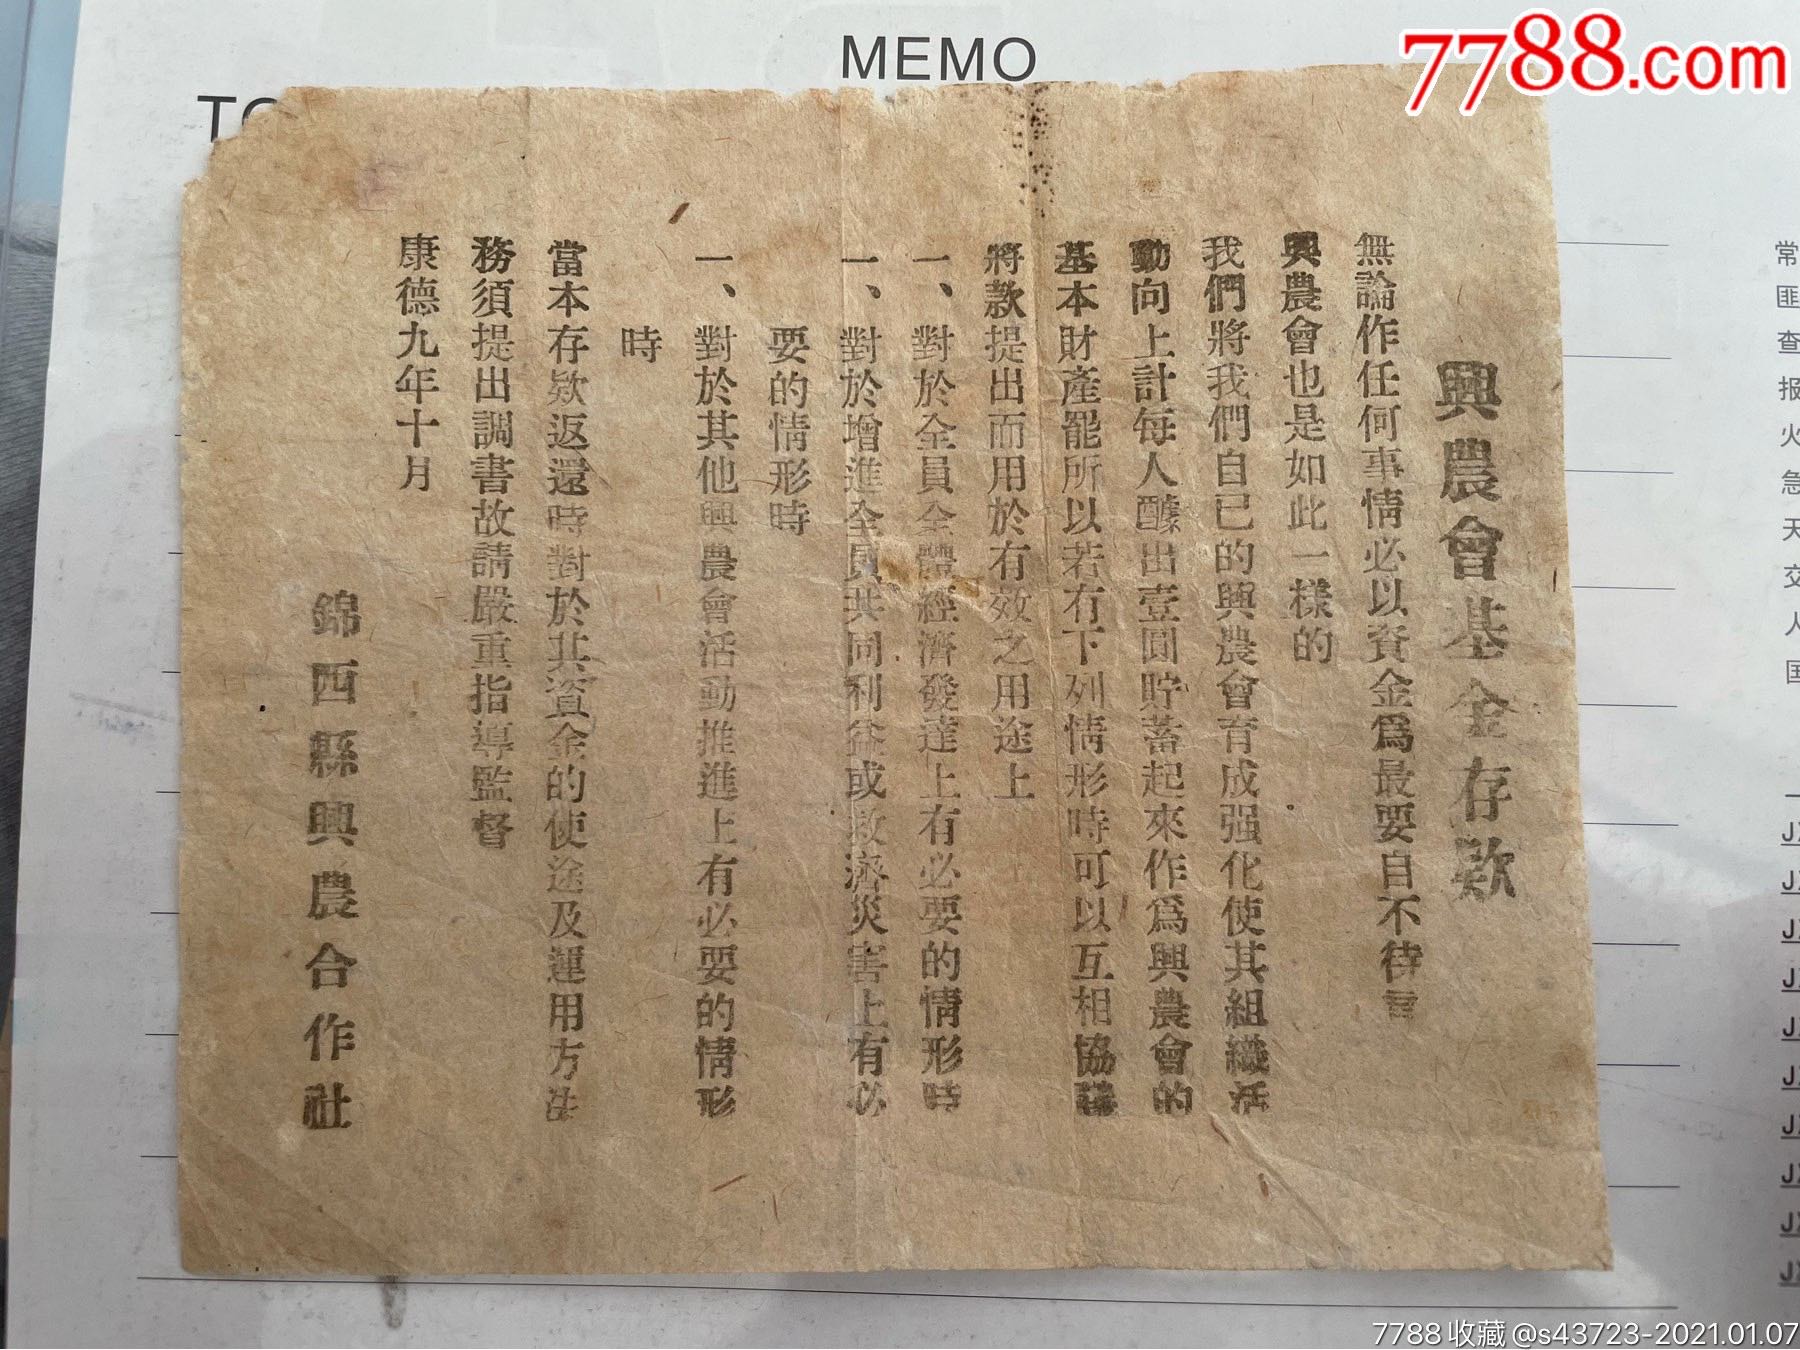 MEMO
7788.com
興農會基金存欵
無論作任何事情必以資金爲最要自不待言
興農會也是如此一樣的
我們將我們自已的興農會育成强化使其組織活
動向上計每人醵出壹圓貯蓄起來作爲興農會的
基本財產罷所以若有下列情形時可以互相協議
將款提出而用於有效之用途上
一、對於全員全體經濟發達上有必要的情形時
一、對於增進全員共同利益或救濟災害上有必
要的情形時
一、對於其他興農會活動推進上有必要的情形
時
當本存欵返還時對於其資金的使途及運用方法
務須提出調書故請嚴重指導監督
康德九年十月
錦西縣興農合作社
常
匪
查
报
火
急
天
交
人
国
7788收藏@s43723-2021.01.07